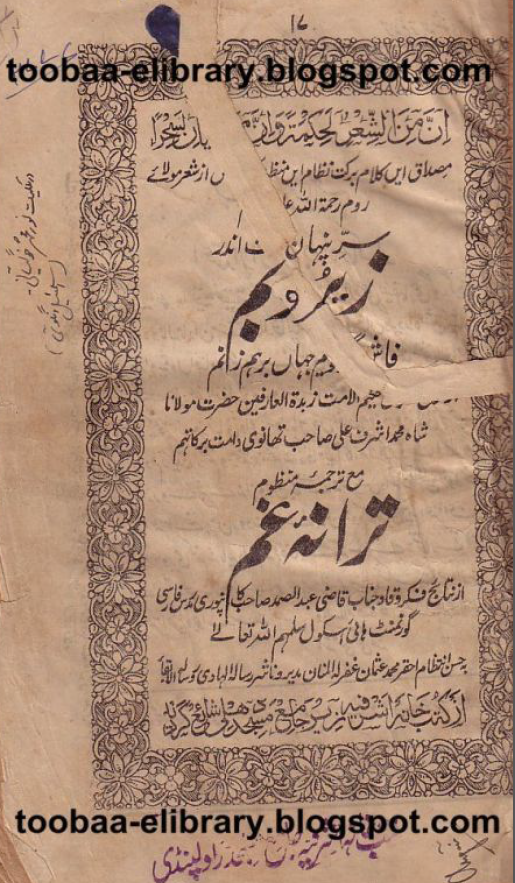 ۱۷
toobaa-elibrary.blogspot.com
ان من الشعر لحکمة وان من البیان لسحرا
مصداق ایں کلام برکت نظام این منظ از شعر مولائے
روم رحمة اللہ
سرّ پنہان اندر
زیر و بم
فاش گویم جہاں برہم زنم
حکیم الامت زبدة العارفین حضرت مولانا
شاہ محمد اشرف علی صاحب تھانوی دامت برکاتہم
مع ترجمہ منظوم
ترانۂ غم
از نتائج فکر وقاد جناب قاضی عبدالصمد صاحب کانپوری مدرس فارسی
گورنمنٹ ہائی اسکول سلمہم اللہ تعالےٰ
بہ حسن انتظام احقر محمد عثمان غفر لہ المنان مدیر و ناشر رسالہ الہادی
از کتب خانہ اشرفیہ زیر جامع مسجد دھلی شائع گردید
toobaa-elibrary.blogspot.com
راولپنڈی